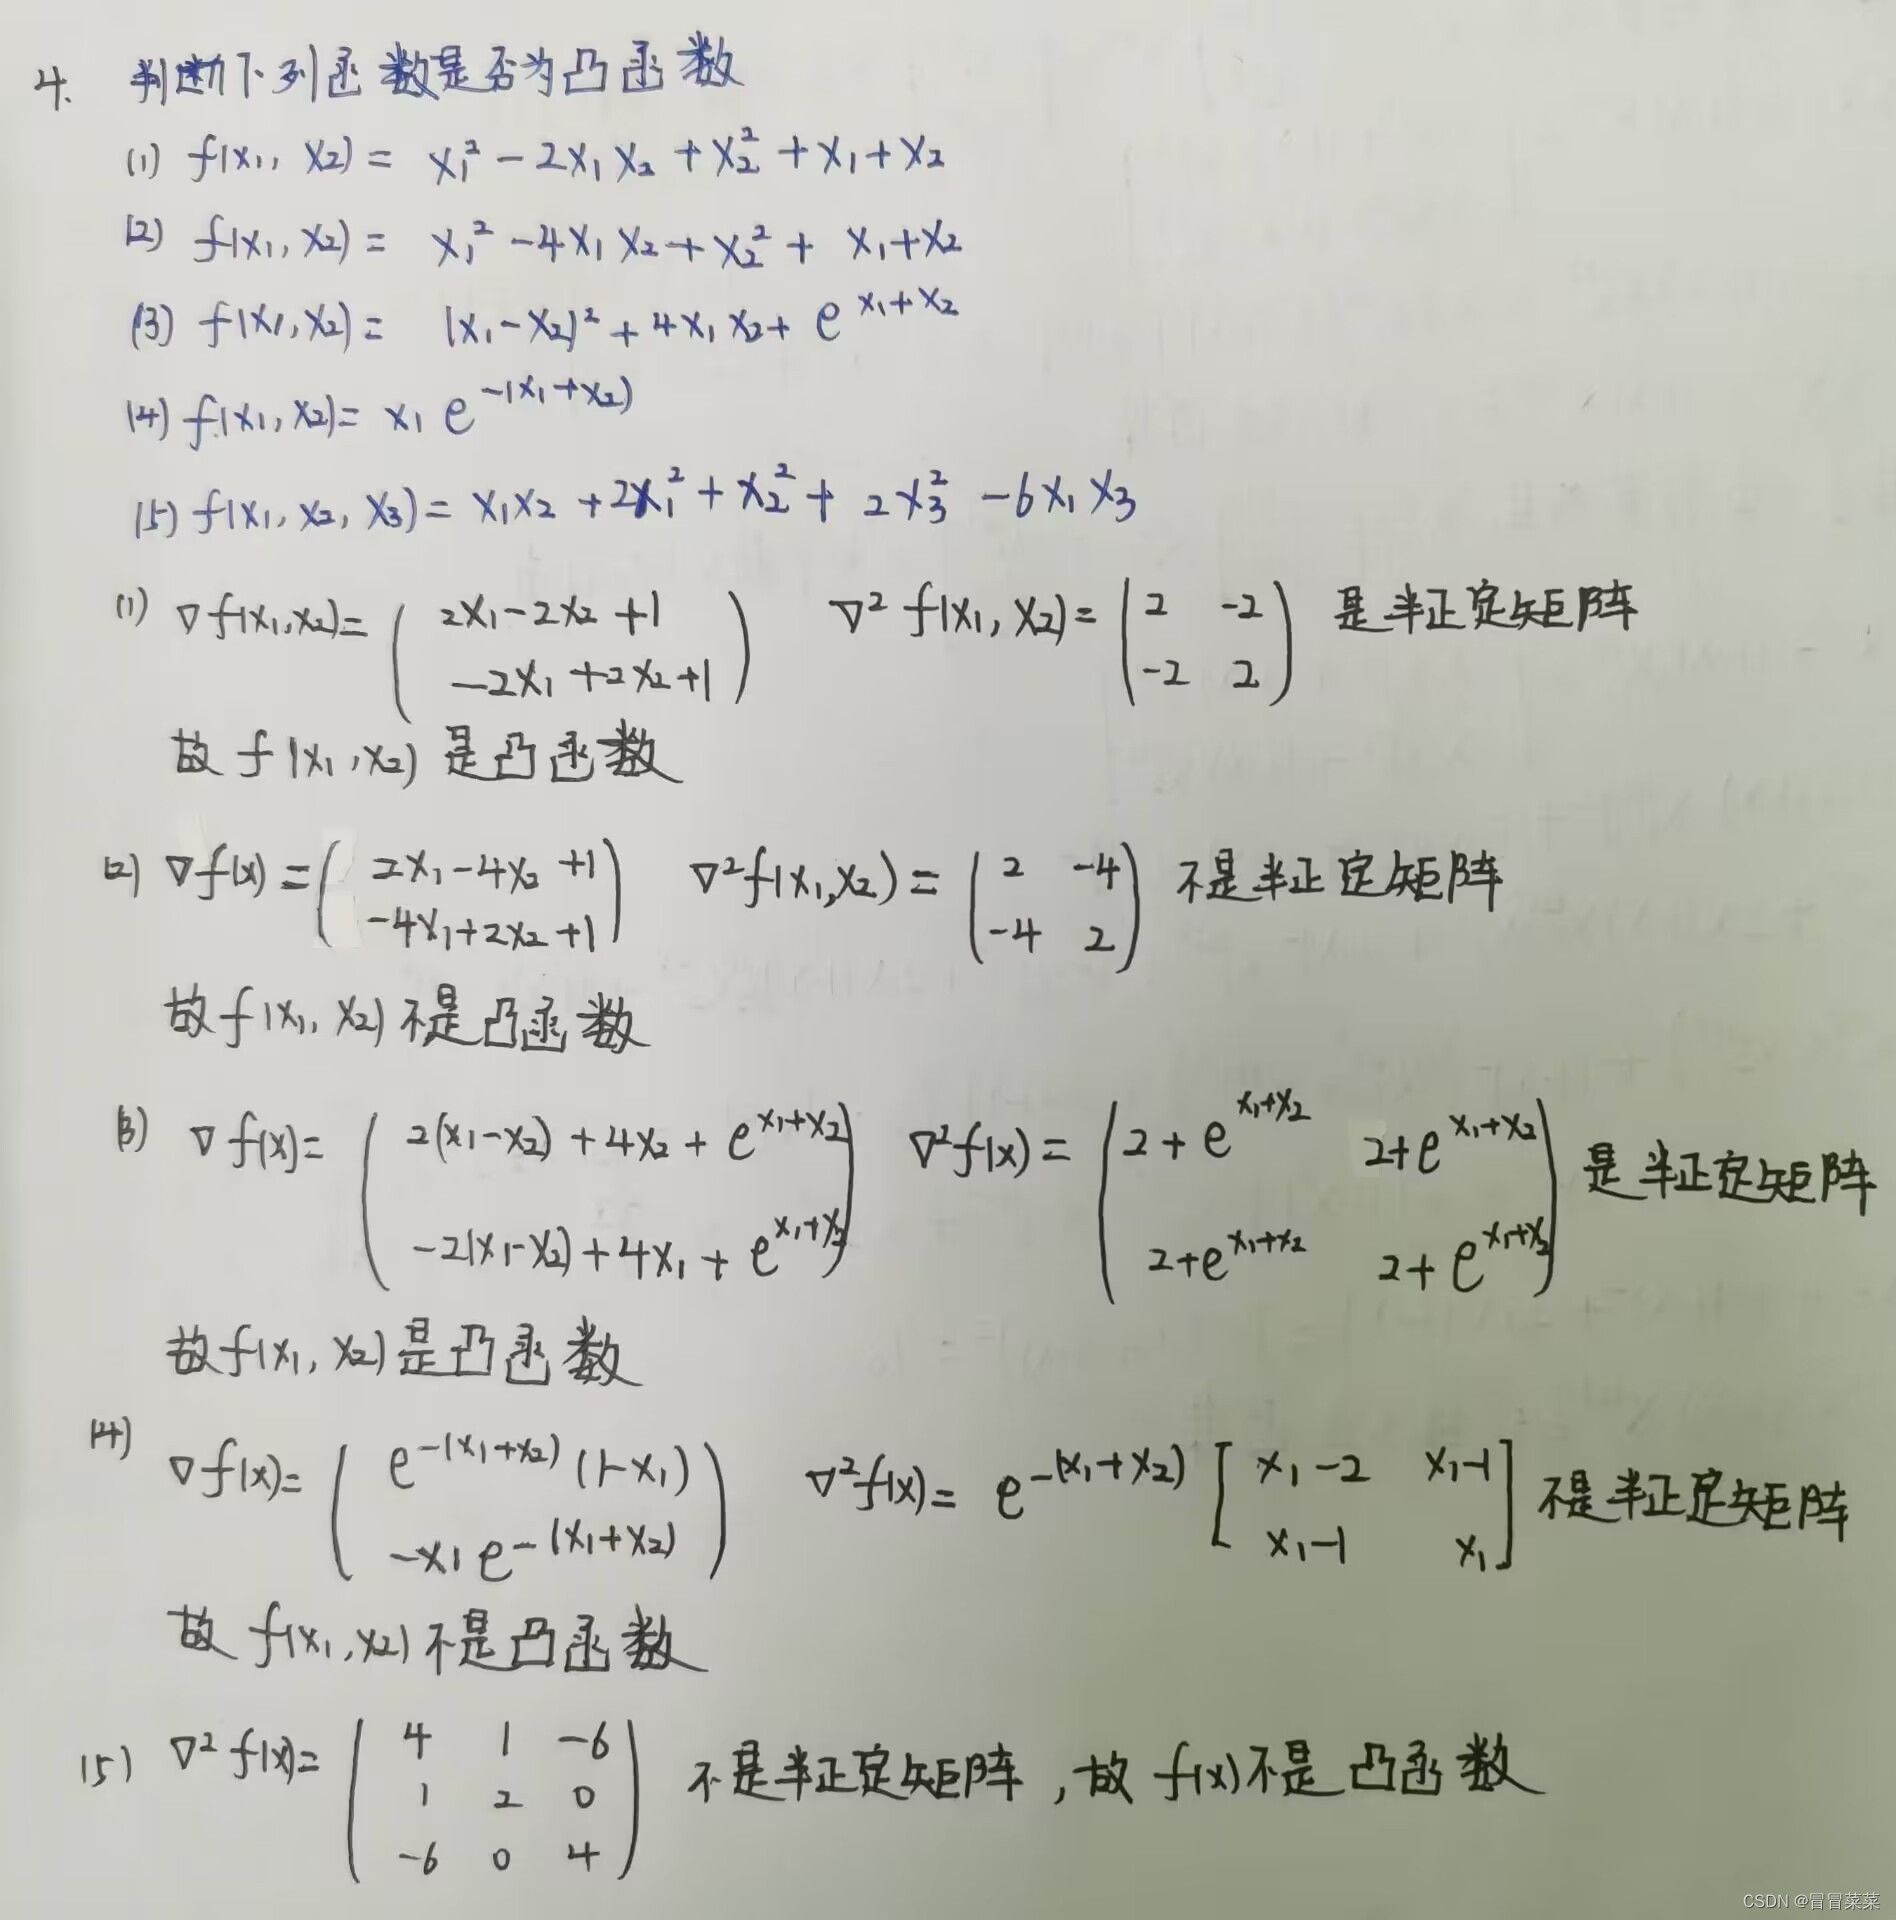 4. 判断下列函数是否为凸函数
(1) f(x₁, x₂) = x₁² - 2x₁x₂ + x₂² + x₁ + x₂
(2) f(x₁, x₂) = x₁² - 4x₁x₂ + x₂² + x₁ + x₂
(3) f(x₁, x₂) = (x₁ - x₂)² + 4x₁x₂ + e^{x₁+x₂}
(4) f(x₁, x₂) = x₁ e^{-(x₁+x₂)}
(5) f(x₁, x₂, x₃) = x₁x₂ + 2x₁² + x₂² + 2x₃² - 6x₁x₃
(1) ∇f(x₁,x₂) = ( 2x₁-2x₂+1 ; -2x₁+2x₂+1 ) ∇²f(x₁, x₂) = ( 2 -2 ; -2 2 ) 是半正定矩阵
故 f(x₁, x₂) 是凸函数
(2) ∇f(x) = ( 2x₁-4x₂+1 ; -4x₁+2x₂+1 ) ∇²f(x₁,x₂) = ( 2 -4 ; -4 2 ) 不是半正定矩阵
故 f(x₁, x₂) 不是凸函数
(3) ∇f(x) = ( 2(x₁-x₂)+4x₂+e^{x₁+x₂} ; -2(x₁-x₂)+4x₁+e^{x₁+x₂} ) ∇²f(x) = ( 2+e^{x₁+x₂} 2+e^{x₁+x₂} ; 2+e^{x₁+x₂} 2+e^{x₁+x₂} ) 是半正定矩阵
故 f(x₁, x₂) 是凸函数
(4) ∇f(x) = ( e^{-(x₁+x₂)}(1-x₁) ; -x₁e^{-(x₁+x₂)} ) ∇²f(x) = e^{-(x₁+x₂)} [ x₁-2 x₁-1 ; x₁-1 x₁ ] 不是半正定矩阵
故 f(x₁, x₂) 不是凸函数
(5) ∇²f(x) = ( 4 1 -6 ; 1 2 0 ; -6 0 4 ) 不是半正定矩阵, 故 f(x) 不是凸函数
CSDN @冒冒菜菜